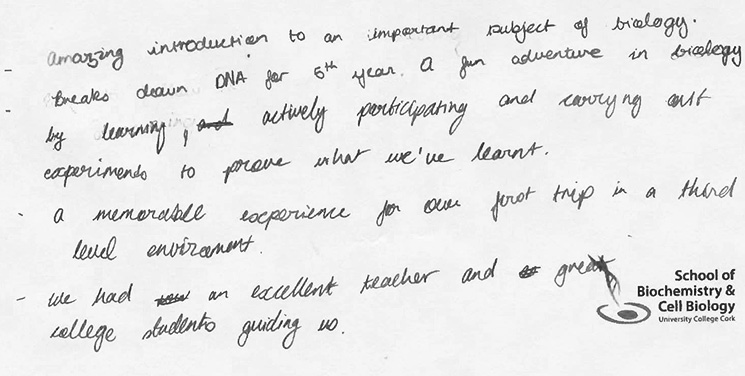 - amazing introduction to an important subject of biology.
- Breaks down DNA for 5th year. A fun adventure in biology
by learning, and actively participating and carrying out
experiments to prove what we've learnt.
- a memorable experience for our first trip in a third
level enviroment.
- We had an excellent teacher and great
college students guiding us.
School of
Biochemistry &
Cell Biology
University College Cork